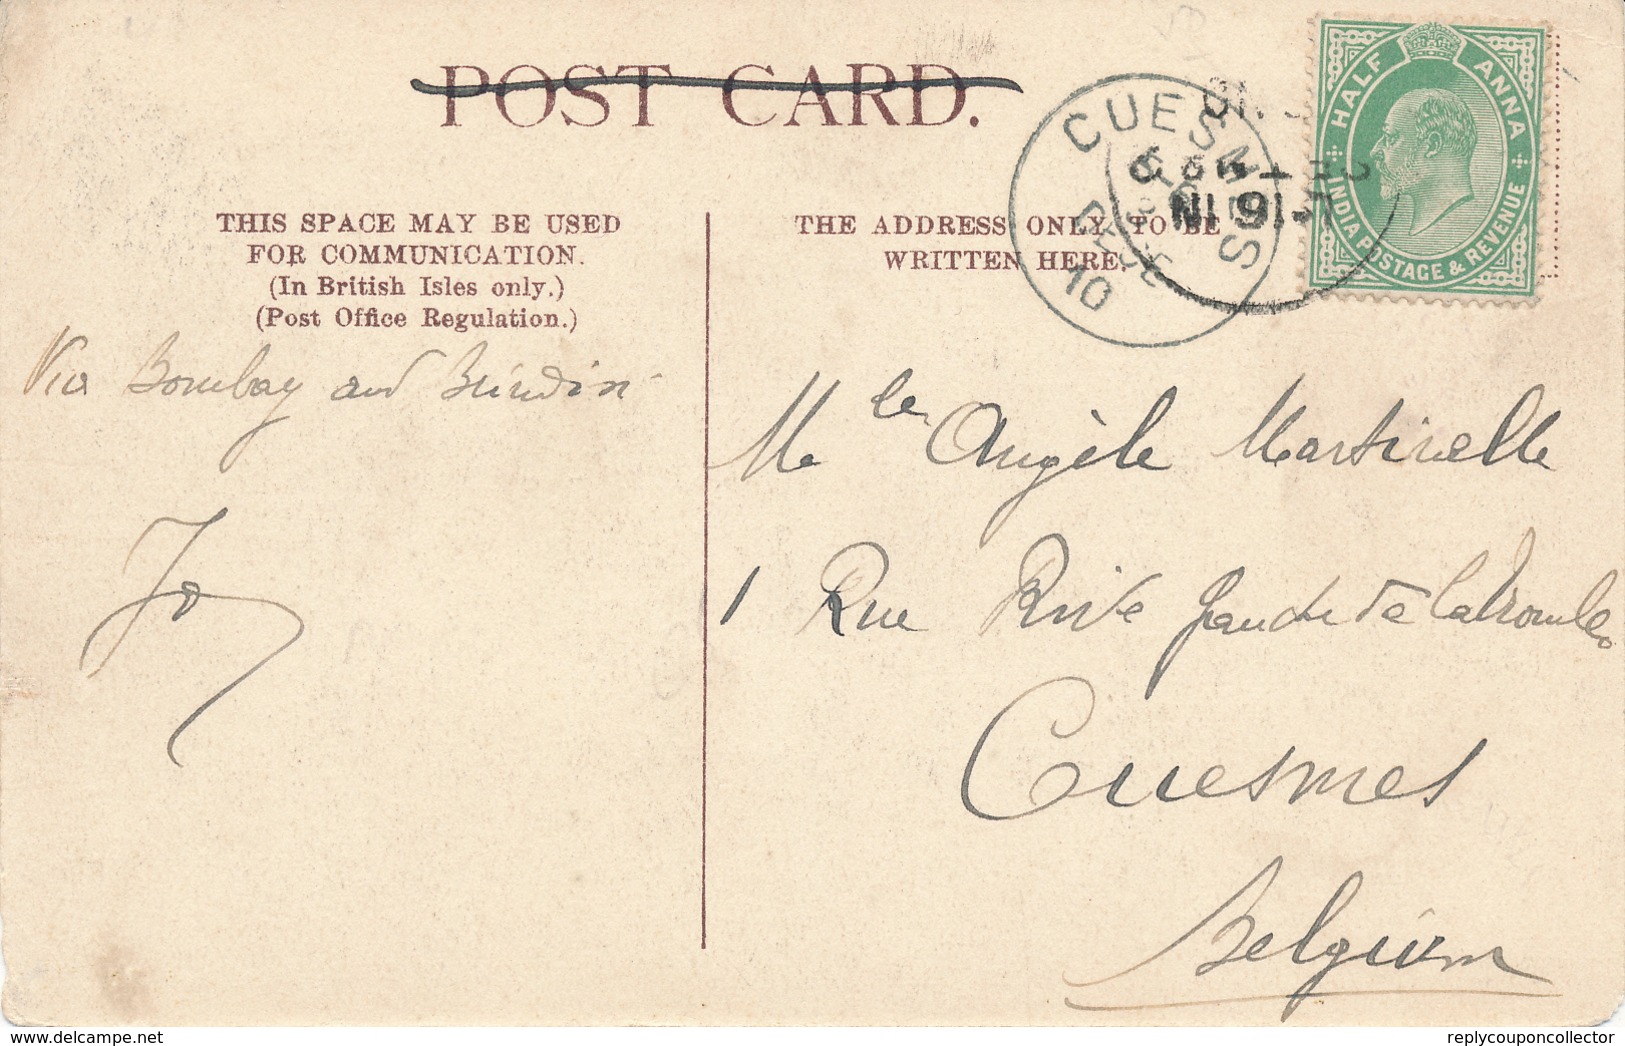 POST CARD.
THIS SPACE MAY BE USED
FOR COMMUNICATION.
(In British Isles only.)
(Post Office Regulation.)
THE ADDRESS ONLY TO BE
WRITTEN HERE.
CUESMES
10
HALF ANNA
INDIA POSTAGE & REVENUE
Via Bombay and Brindisi
Jo
Mlle Angèle Martinelle
1 Rue Rive gauche de la Trouille
Cuesmes
Belgium
delcampe.net
replycouponcollector